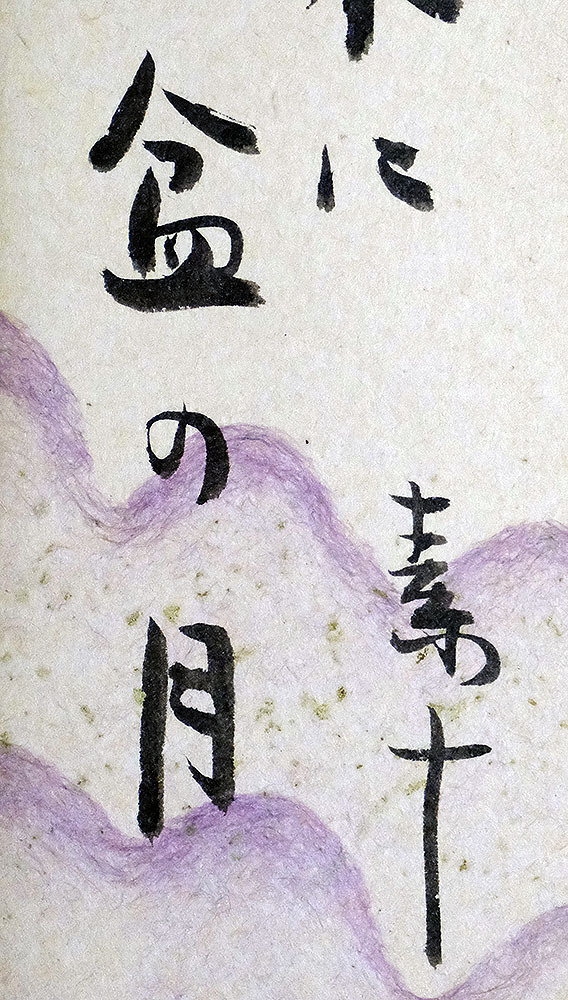 に
盆の月
素十